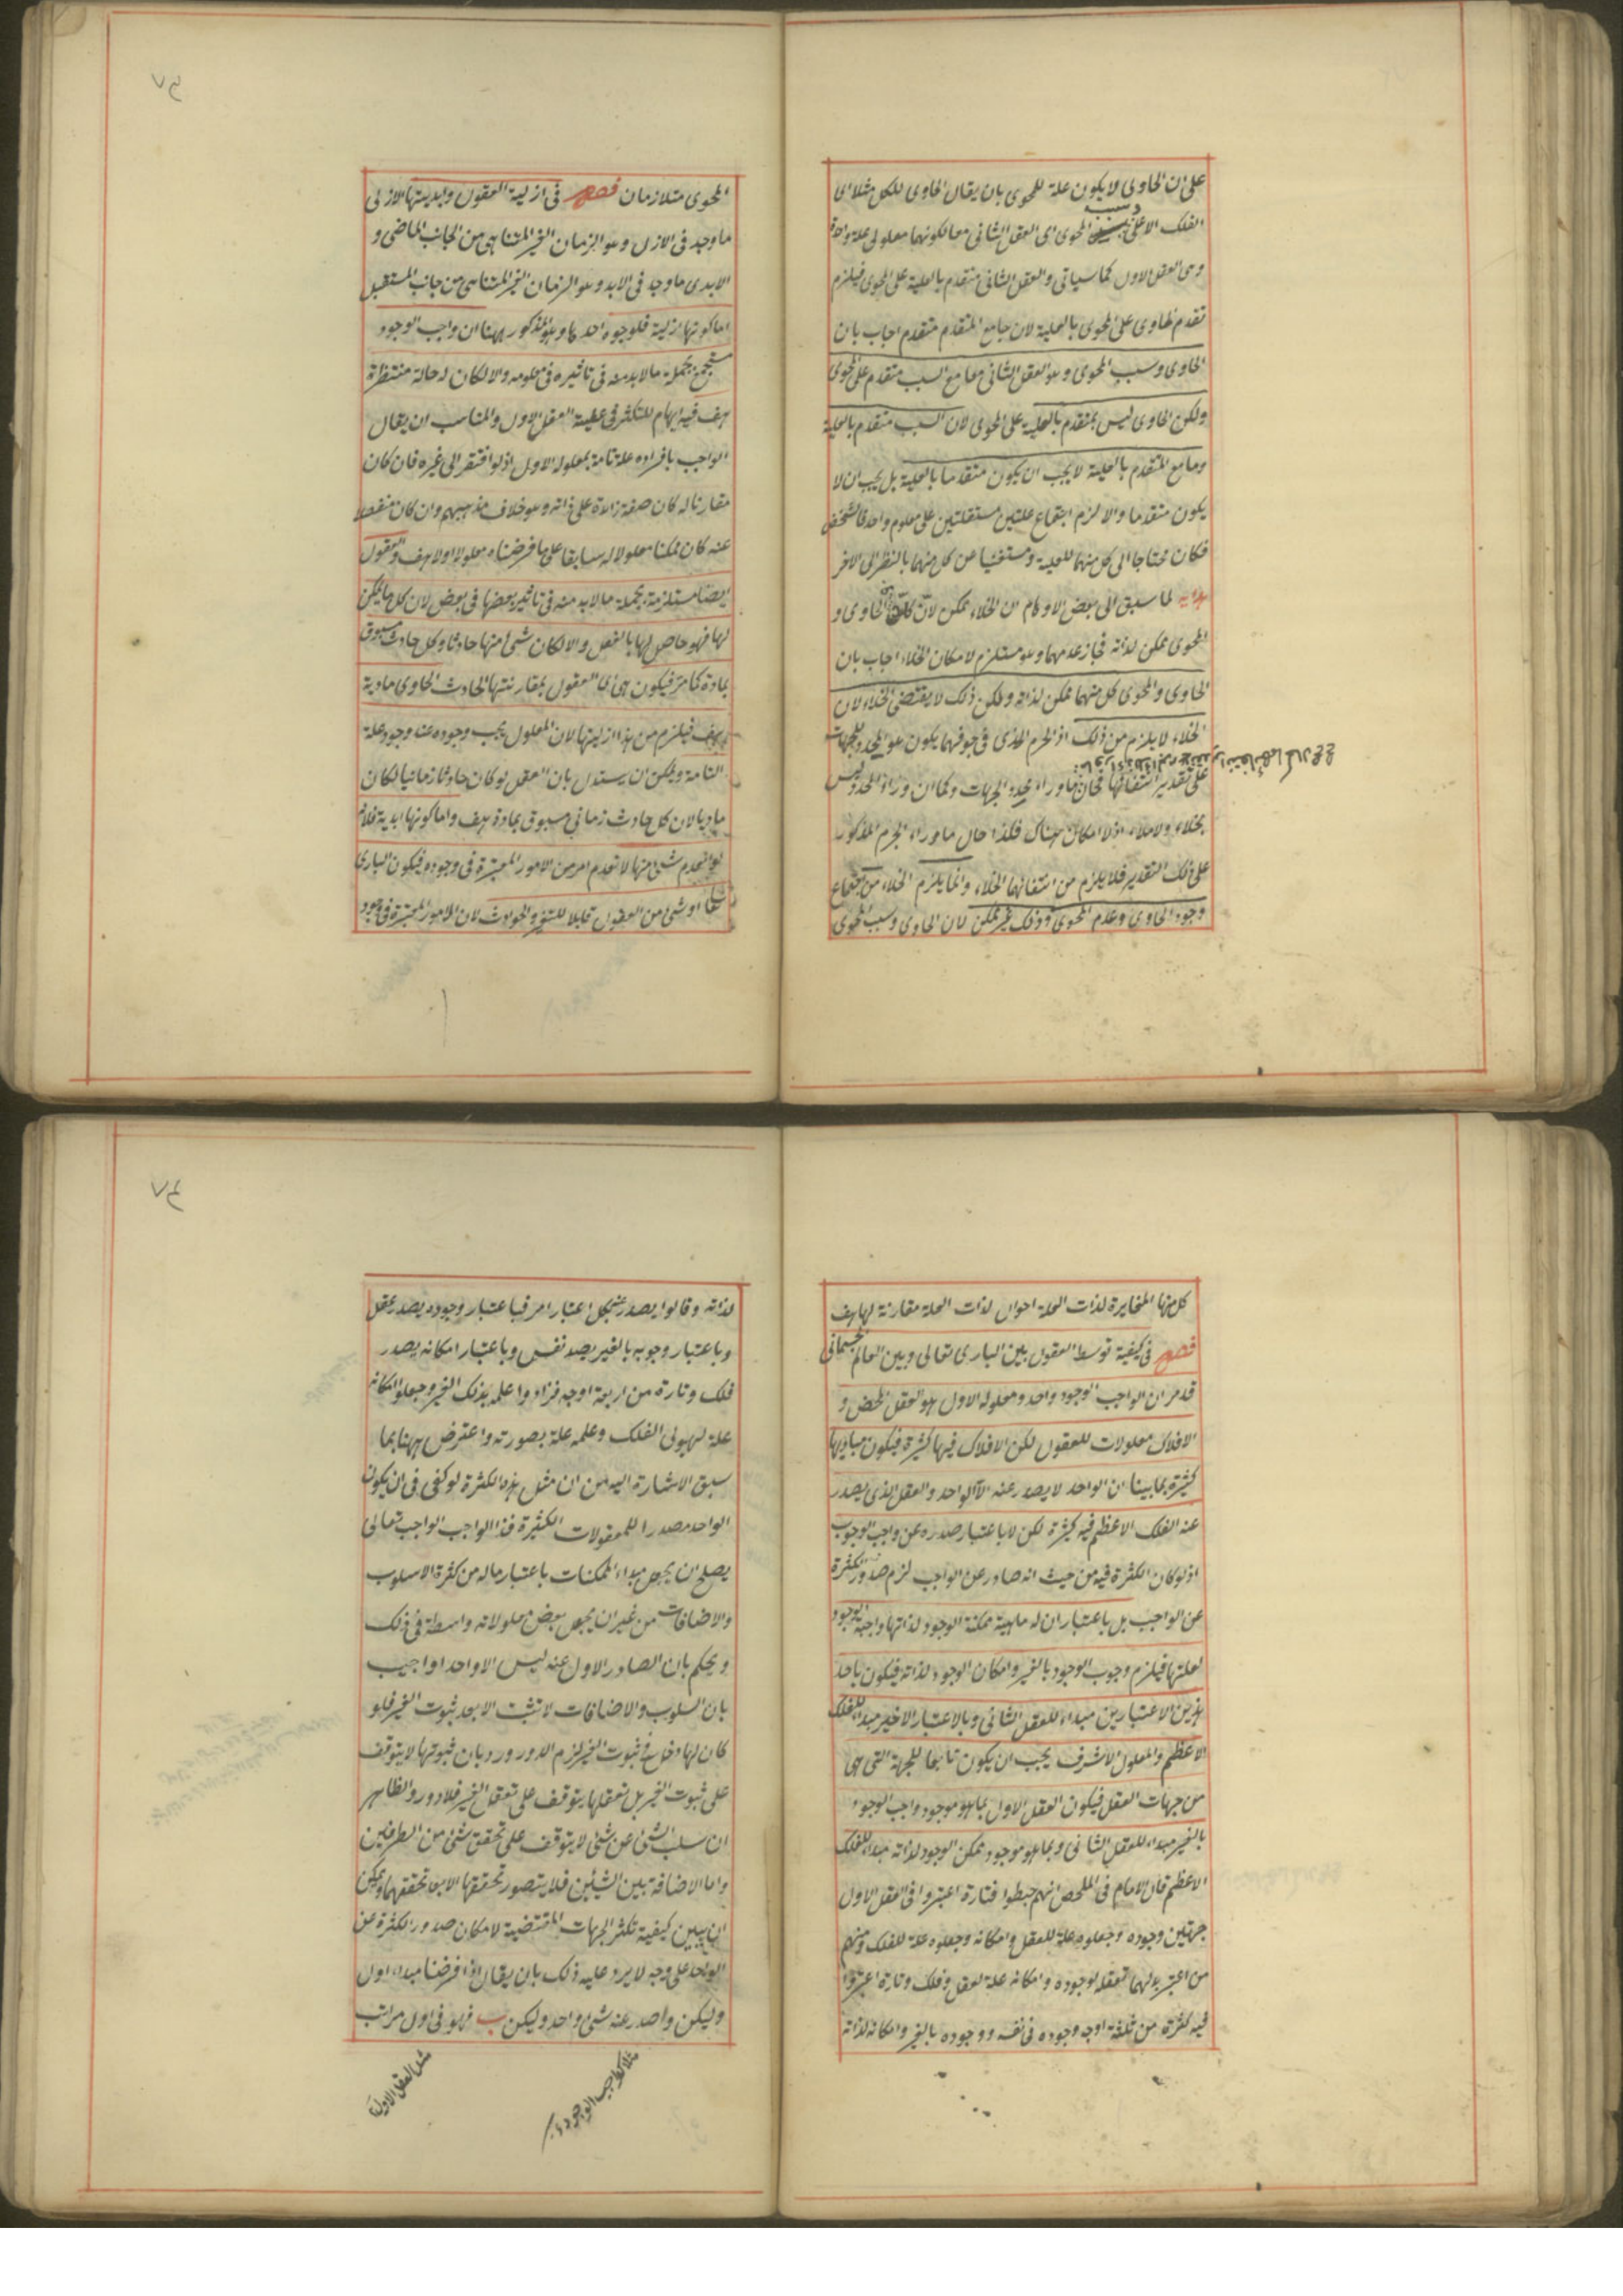 على ان الحاوى لا يكون علة للمحوى بان يقال الحاوى للكل مثلا اى
الفلك الاعلى وسبب المحوى اى العقل الثانى معا لكونهما معلولى علة واحدة
وهى العقل الاول كما سياتى والعقل الثانى متقدم بالعلية على المحوى فيلزم
تقدم الحاوى على المحوى بالعلية لان ما مع المتقدم متقدم اجاب بان
الحاوى وسبب المحوى وهو العقل الثانى معا مع السبب متقدم على المحوى
ولكن الحاوى ليس بمتقدم بالعلية على المحوى لان السبب متقدم بالعلية
وما مع المتقدم بالعلية لا يجب ان يكون متقدما بالعلية بل يجب ان لا
يكون متقدما والا لزم اجتماع علتين مستقلتين على معلول واحد بالشخص
فكان محتاجا الى كل منهما للعلية ومستغنيا عن كل منهما بالنظر الى الاخر
هداية لما سبق الى بعض الاوهام ان الخلاء ممكن لان كلا من الحاوى و
المحوى ممكن لذاته فجاز عدمهما وهو مستلزم لامكان الخلاء اجاب بان
الحاوى والمحوى كل منهما ممكن لذاته ولكن ذلك لا يقتضى الخلاء لان
الخلاء لا يلزم من ذلك اذ الجرم الذى فى جوفهما يكون هو المحدد للجهات
على تقدير انتفائهما فحال ما وراء محدد الجهات وكما ان وراء المحدد ليس
بخلاء ولا ملاء اذ لا امكان هناك فكذا حال ما وراء الجرم المذكور
على ذلك التقدير فلا يلزم من انتفائهما الخلاء وانما يلزم الخلاء من اجتماع
وجود الحاوى وعدم المحوى وذلك غير ممكن لان الحاوى وسبب المحوى
٤٧
المحوى متلازمان فصل فى ازلية العقول وابديتها الازلى
ما وجد فى الازل وهو الزمان الغير المتناهى من الجانب الماضى و
الابدى ما وجد فى الابد وهو الزمان الغير المتناهى من جانب المستقبل
اما كونها ازلية فلوجوه احدها وهو المذكور ههنا ان واجب الوجود
مستجمع بجملة ما لا بد منه فى تاثيره فى معلوله والا لكان له حالة منتظرة
هف فيه ايهام للتكثر فى علية العقل الاول والمناسب ان يقال
الواجب بانفراده علة تامة بمعلوله الاول اذ لو افتقر الى غيره فان كان
مقارنا له كان صفة زائدة على ذاته وهو خلاف مذهبهم وان كان منفصلا
عنه كان ممكنا معلولا له سابقا على ما فرضناه معلولا اولا هف والعقول
ايضا مستلزمة بجملة ما لا بد منه فى تاثير بعضها فى بعض لان كل ما يمكن
لها فهو حاصل لها بالفعل والا لكان شئ منها حادثا وكل حادث مسبوق
بمادة كما مر فيكون هى اى العقول بمقارنتها الحادث الحاوى مادية
هف فيلزم من هذا ازليتها لان المعلول يجب وجوده عند وجود علة
التامة ويمكن ان يستدل بان العقل لو كان حادثا زمانيا لكان
ماديا لان كل حادث زمانى مسبوق بمادة هف واما كونها ابدية فلانه
لو انعدم شئ منها لانعدم امر من الامور المعتبرة فى وجوده فيكون البارى
تعالى او شئ من العقول قابلا للتغير والحوادث لان الامور المعتبرة فى وجود
كل منها المغايرة لذات العلة احوال لذات العلة مقارنة لها هف
فصل فى كيفية توسط العقول بين البارى تعالى وبين العالم الجسمانى
قد مر ان الواجب الوجود واحد ومعلوله الاول هو العقل المحض و
الافلاك معلولات للعقول لكن الافلاك فيها كثرة فيكون مباديها
كثيرة بما بينا ان الواحد لا يصدر عنه الا الواحد والعقل الذى يصدر
عنه الفلك الاعظم فيه كثرة لكن لا باعتبار صدوره عن واجب الوجود
اذ لو كان الكثرة فيه من حيث انه صادر عن الواجب لزم صدور الكثرة
عن الواجب بل باعتبار ان له ماهية ممكنة الوجود لذاتها واجبة الوجود
لعلتها فيلزم وجوب الوجود بالغير وامكان الوجود لذاته فيكون باحد
هذين الاعتبارين مبداء للعقل الثانى وبالاعتبار الاخير مبداء للفلك
الاعظم والمعلول الاشرف يجب ان يكون تابعا للجهة التى هى
من جهات العقل فيكون العقل الاول بما هو موجود واجب الوجود
بالغير مبداء للعقل الثانى وبما هو موجود ممكن الوجود لذاته مبداء للفلك
الاعظم قال الامام فى الملخص انهم خبطوا فتارة اعتبروا فى العقل الاول
جهتين وجوده وجعلوه علة للعقل وامكانه وجعلوه علة للفلك ومنهم
من اعتبر بدلهما تعقله لوجوده وامكانه علة لعقل وفلك وتارة اعتبروا
فيه كثرة من ثلثة اوجه وجوده فى نفسه ووجوده بالغير وامكانه لذاته
٤٧
لذاته وقالوا يصدر بكل اعتبار امر فباعتبار وجوده يصدر عقل
وباعتبار وجوبه بالغير يصدر نفس وباعتبار امكانه يصدر
فلك وتارة من اربعة اوجه فزادوا علمه بذلك الغير وجعلوا امكانه
علة لهيولى الفلك وعلمه علة بصورته واعترض ههنا بما
سبق الاشارة اليه من ان مثل هذه الكثرة لو كفى فى ان يكون
الواحد مصدرا للمعلولات الكثيرة فذا الواجب الواجب تعالى
يصلح ان يجعل مبداء الممكنات باعتبار ماله من كثرة الاسلوب
والاضافات من غير ان يجعل بعض معلولاته واسطة فى ذلك
ويحكم بان الصادر الاول عنه ليس الا واحدا واجيب
بان السلوب والاضافات لا تثبت الا بعد ثبوت الغير فلو
كان لها دخل فى ثبوت الغير لزم الدور ورد بان ثبوتها لا يتوقف
على ثبوت الغير بل تعقلها يتوقف على تعقل الغير فلا دور والظاهر
ان سلب الشئ عن شئ لا يتوقف على تحقق شئ من الطرفين
واما الاضافة بين الشيئين فلا يتصور تحققها الا بعد تحققهما ويمكن
ان يبين كيفية تكثر الجهات المقتضية لامكان صدور الكثرة عن
الواحد على وجه لا يرد عليه ذلك بان يقال اذا فرضنا مبداء اول
وليكن وا صدر عنه شئ واحد وليكن ب فهو فى اول مراتب
مثلا كواجب الوجود
مثل العقل الاول